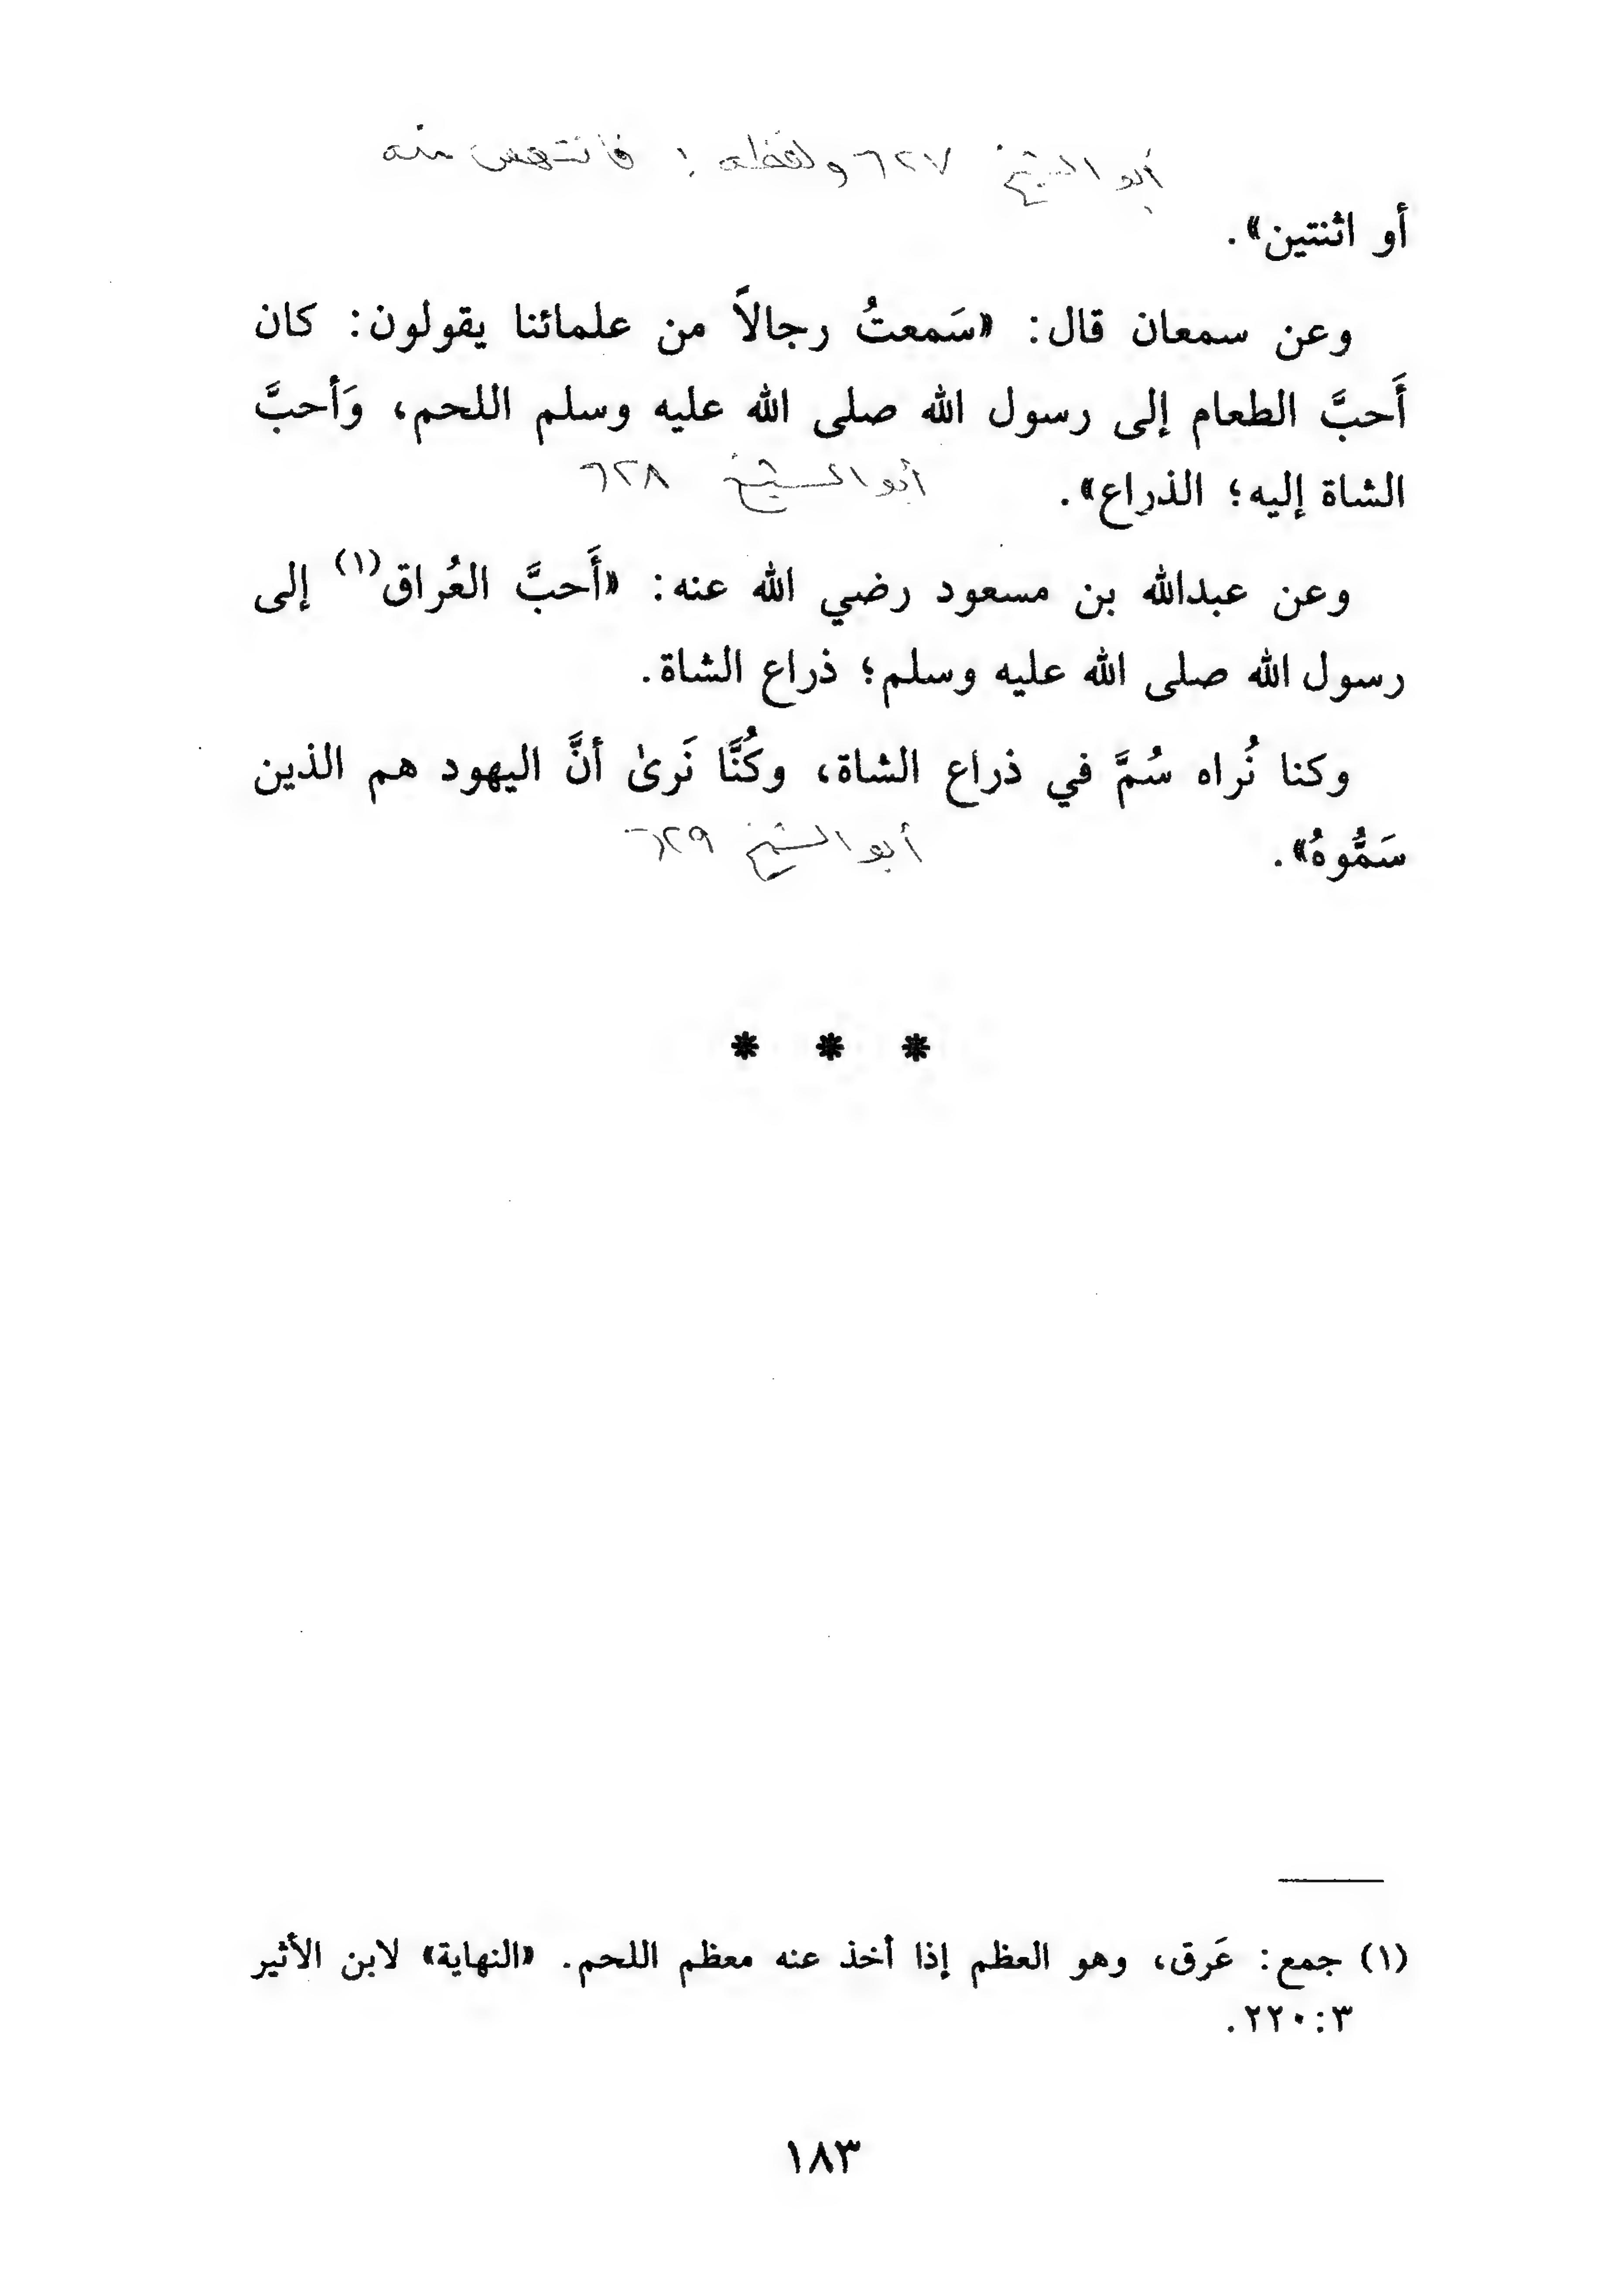 أبو الشيخ ٦٢٧ ولفظه: فانتهس منه
أو اثنتين».
وعن سمعان قال: «سَمعتُ رجالاً من علمائنا يقولون: كان
أَحبَّ الطعام إلى رسول الله صلى الله عليه وسلم اللحم، وَأحبَّ
الشاة إليه؛ الذراع».
أبو الشيخ ٦٢٨
وعن عبدالله بن مسعود رضي الله عنه: «أَحبَّ العُراق(١) إلى
رسول الله صلى الله عليه وسلم؛ ذراع الشاة.
وكنا نُراه سُمَّ في ذراع الشاة، وكُنَّا نَرىٰ أنَّ اليهود هم الذين
سَمُّوهُ».
أبو الشيخ ٦٢٩
* * *
(١) جمع: عَرق، وهو العظم إذا أخذ عنه معظم اللحم. «النهاية» لابن الأثير
٣:٢٢٠.
١٨٣